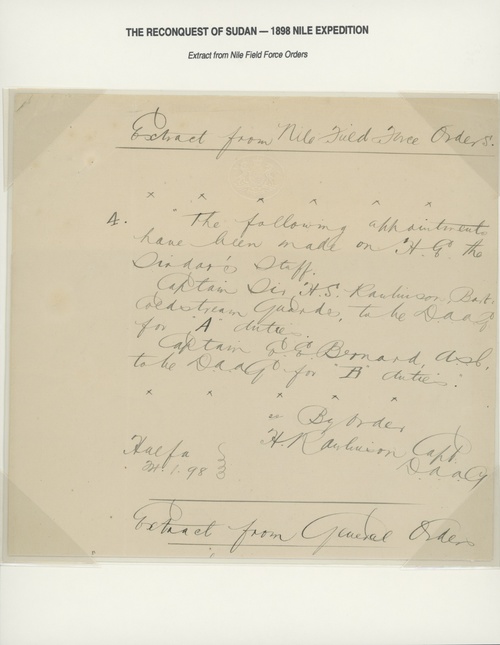 THE RECONQUEST OF SUDAN — 1898 NILE EXPEDITION
Extract from Nile Field Force Orders
Extract from Nile Field Force Orders.
x x x x x x
4. "The following appointments
have been made on H.E. the
Sirdar's Staff.
Captain Sir H.S. Rawlinson Bart.
Coldstream Guards, to be D.a.a.G
for "A" duties.
Captain Bernard, A.S.C.
to be D.a.a.G for "B" duties".
x x x x x
By Order
H. Rawlinson Capt.
D.a.a.G
Halfa
.1.98
Extract from General Orders